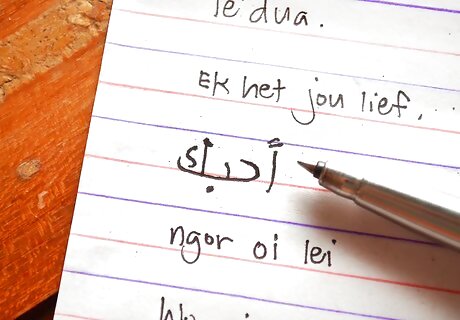 te dua.
Ek het jou lief.
أحبك
ngor oi lei